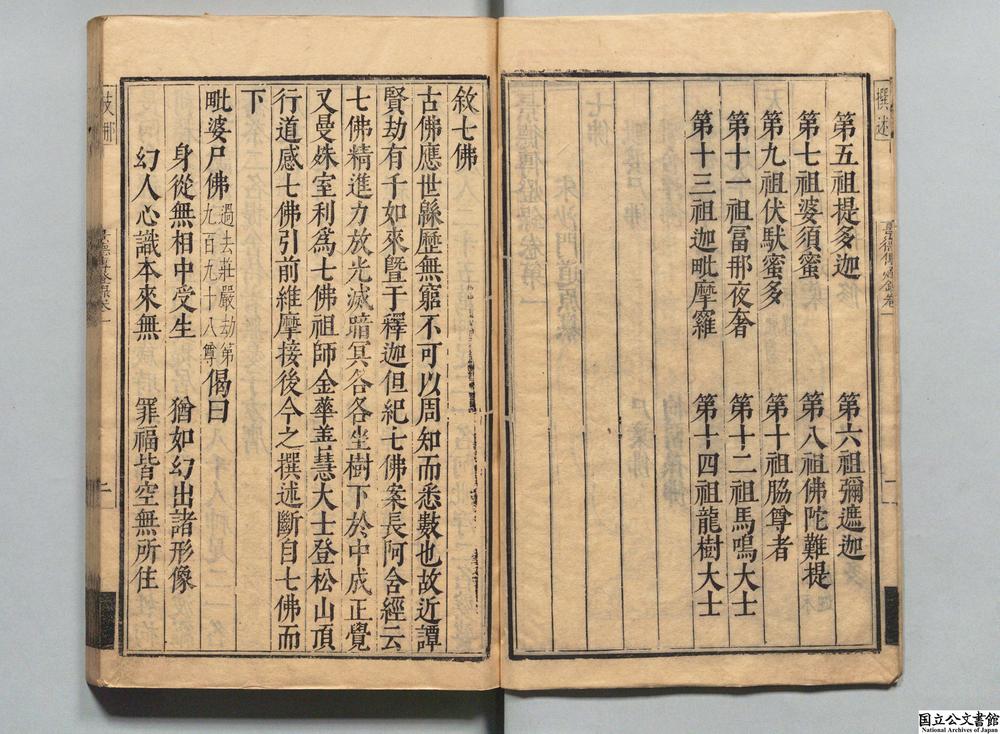 撰述
景德傳燈錄卷一
第五祖提多迦　第六祖彌遮迦
第七祖婆須蜜　第八祖佛陀難提
第九祖伏馱蜜多　第十祖脇尊者
第十一祖富那夜奢　第十二祖馬鳴大士
第十三祖迦毗摩羅　第十四祖龍樹大士
敘七佛
古佛應世緜歷無窮不可以周知而悉數也故近譚
賢劫有千如來曁于釋迦但紀七佛案長阿含經云
七佛精進力放光滅暗冥各各坐樹下於中成正覺
又曼殊室利爲七佛祖師金華善慧大士登松山頂
行道感七佛引前維摩接後今之撰述斷自七佛而
下
毗婆尸佛過去莊嚴劫第九百九十八尊偈曰
身從無相中受生　猶如幻出諸形像
幻人心識本來無　罪福皆空無所住
国立公文書館
National Archives of Japan